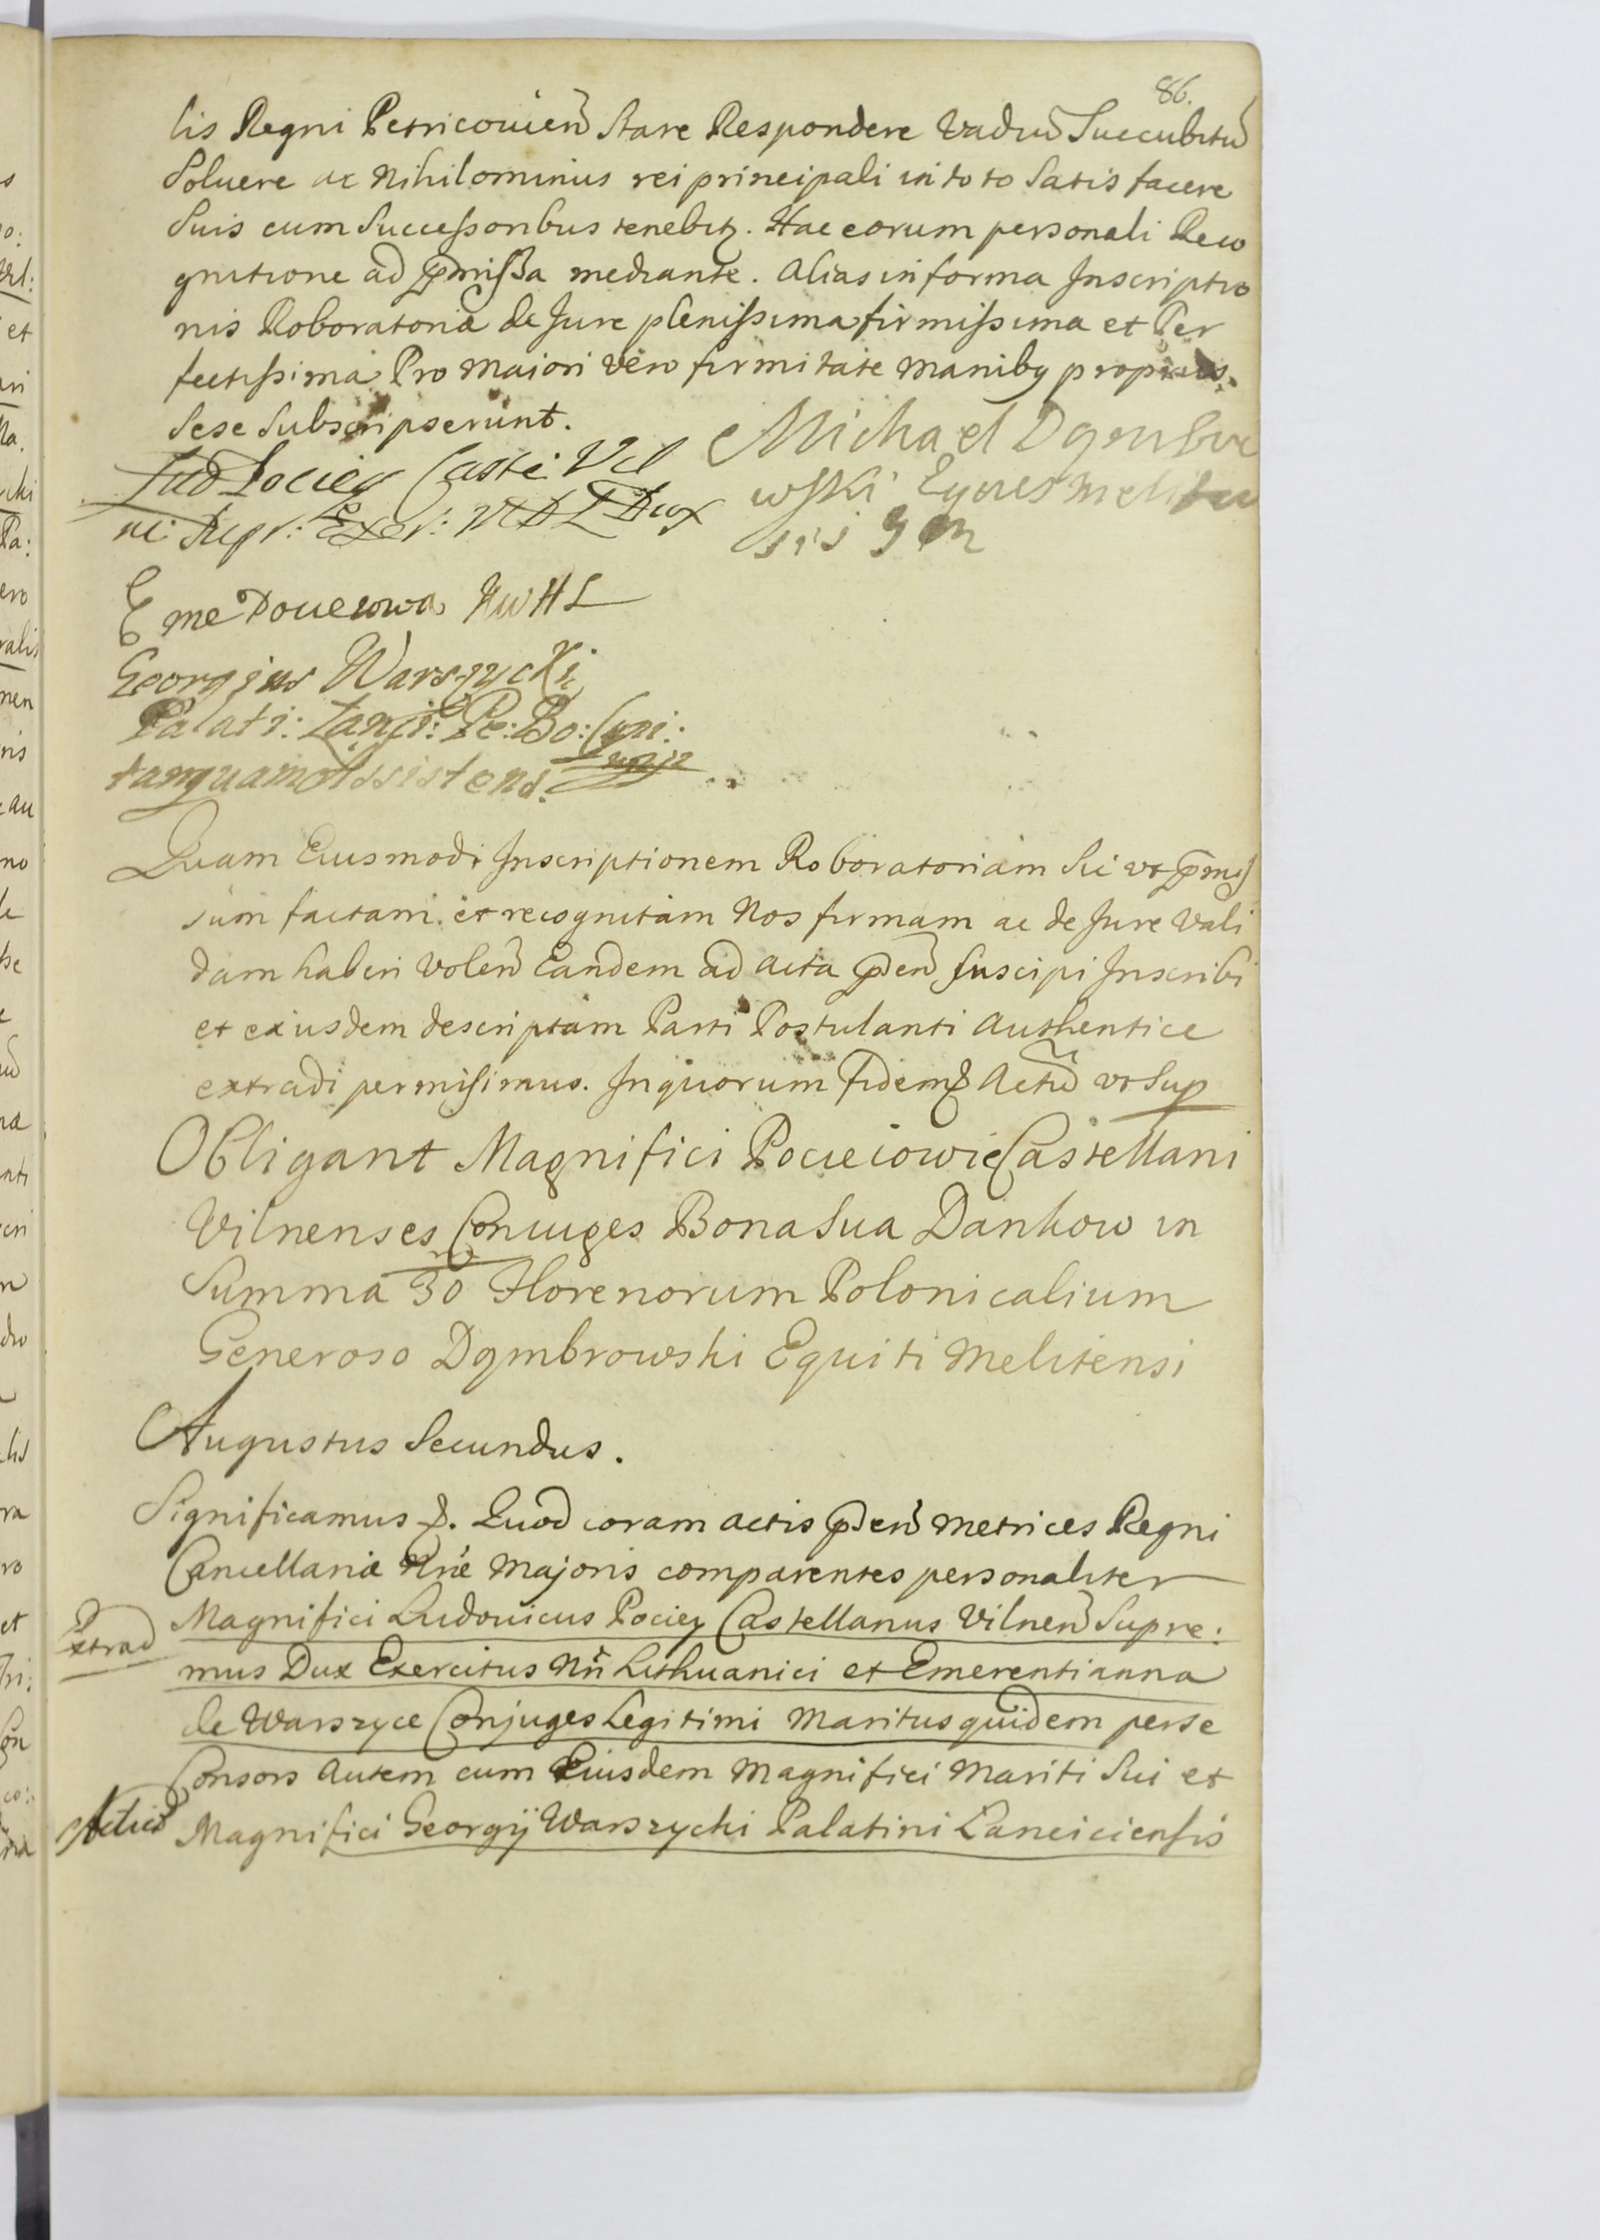 86.
lis Regni Petricouien̄ Stare Respondere Vadiu᷑ Succubitu᷑
Soluere ac Nihilominus rei principali in toto Satisfacere
Suis cum Successoribus tenebitz. Hac eorum personali Reco
gnitione ad p̄missa mediante. Alias in forma Inscriptio
nis Roboratoriæ de Jure plenissima firmissima et Per
fectissima Pro Maiori vero firmitate Maniby propriis
Sese Subscripserunt.
Lud Pociey Castei Vil
ne: Supr: Exer: MDL Dux
Michael Dąmbro
wski Eques Melite
sis
Eme Pocieiowa KWHL
Georgius Warszycki
Palati: Łanci: Pe: Bo:
tanquam Assistens.
Quam Eiusmodi Inscriptionem Roboratoriam Sic vt p̄mis
sum factam et recognitam Nos firmam ac de Jure Vali
dam haberi volen̄ Eandem ad acta p̄den̄ suscipi Inscribi
et exiisdem descriptam Parti Postulanti Authentice
extradi permisimus. In quorum fidem &. Actu᷑ vt Sup
Obligant Magnifici Pocieiowie Castellani
Vilnenses Coniuges Bona Sua Dankow in
Summa 30 m Florenorum Polonicalium
Generoso Dąmbrowski Equiti Melitensi
Augustus Secundus.
Significamus &. Quod coram actis p̄den̄ Metrices Regni
Cancellariæ Nræ Majoris comparentes personaliter
Magnifici Ludouicus Pociey Castellanus Vilnen̄ Supre:
Extrad
mus Dux Exercitus Nri̅ Lithuanici et Emerentianna
de Warszyce Conjuges Legitimi Maritus quidem per se
Consors Autem cum Eiusdem Magnifici Mariti Sui et
Magnifici Georgij Warszycki Palatini Lanciciensis